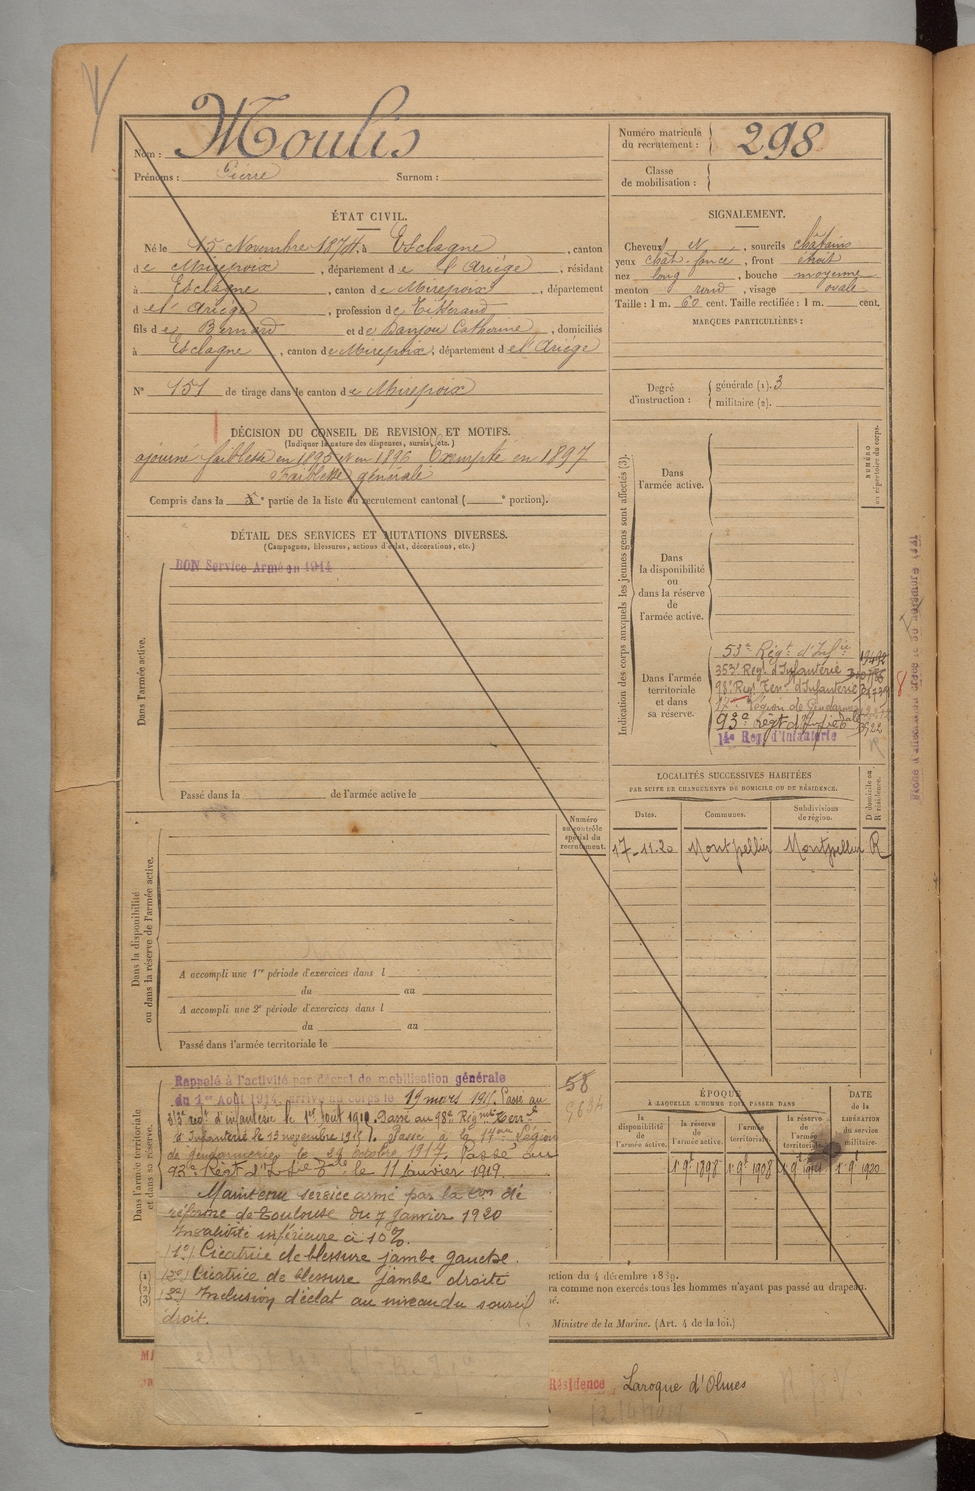 Nom : Moulis
Prénoms : Pierre Surnom :
Numéro matricule du recrutement : 298
Classe de mobilisation :
ÉTAT CIVIL.
Né le 15 Novembre 1874 à Esclagne, canton
de Mirepoix, département de l'Ariège, résidant
à Esclagne, canton de Mirepoix, département
d el' Ariège, profession de Tisserand
fils de Bernard et de Danjou Catherine, domiciliés
à Esclagne, canton de Mirepoix, département d el'Ariège
N° 151 de tirage dans le canton de Mirepoix
SIGNALEMENT.
Cheveux et , sourcils châtains
yeux chât. foncé, front étroit
nez long, bouche moyenne
menton rond, visage ovale
Taille : 1 m. 60 cent. Taille rectifiée : 1 m. cent.
MARQUES PARTICULIÈRES :
Degré d'instruction : générale (1). 3
militaire (2).
DÉCISION DU CONSEIL DE REVISION ET MOTIFS.
(Indiquer la nature des dispenses, sursis, etc.)
ajourné faiblesse en 1895 et en 1896 Exempté en 1897
Faiblesse générale
Compris dans la ᵉ partie de la liste du recrutement cantonal ( ᵉ portion).
DÉTAIL DES SERVICES ET MUTATIONS DIVERSES.
(Campagnes, blessures, actions d'éclat, décorations, etc.)
Dans l'armée active.
BON Service Armé en 1914
Passé dans la de l'armée active le
Indication des corps auxquels les jeunes gens sont affectés (3).
NUMÉRO au répertoire du corps.
Dans l'armée active.
Dans la disponibilité ou dans la réserve de l'armée active.
Dans l'armée territoriale et dans sa réserve.
53e Régt. d'Infie
353e Regt. d'Infanterie
98e Regt Terr. d'Infanterie
17e Légion de Gendarmerie
93e Régt d'Infie
14e Reg. d'Infanterie
LOCALITÉS SUCCESSIVES HABITÉES
PAR SUITE DE CHANGEMENTS DE DOMICILE OU DE RÉSIDENCE.
Dates. Communes. Subdivisions de région. D domicile ou R résidence.
17-11.20 Montpellier Montpellier R
Dans la disponibilité ou dans la réserve de l'armée active.
Numéro au contrôle spécial du recrutement.
A accompli une 1re période d'exercices dans l
du au
A accompli une 2e période d'exercices dans l
du au
Passé dans l'armée territoriale le
Dans l'armée territoriale et dans sa réserve.
Rappelé à l'activité par décret de mobilisation générale
du 1er Août 1914. Arrivé au corps le 19 mars 1915. Passé au
régt d'infanterie le 1er Août Passé au 98e Régimt Terral
d'Infanterie le 13 novembre Passé à la 17me Légion
de gendarmerie le 24 Octobre 1917. Passé au
93e Régt d'Infie le 11 Janvier 1919.
Maintenu service armé par la de
réforme de Toulouse du 7 Janvier 1920
Invalidité inférieure à 10%.
1o) Cicatrice de blessure jambe gauche.
2o) Cicatrice de blessure jambe droite
3o) Inclusion d'éclat au niveau du sourcil
droit.
58
ÉPOQUE
À LAQUELLE L'HOMME DOIT PASSER DANS
la disponibilité de l'armée active. la réserve de l'armée active. l'armée territoriale. la réserve de l'armée territoriale.
DATE de la LIBÉRATION du service militaire.
1er 9bre 1898 1er 9bre 1908 1er 9bre 1914 1er 9bre 1920
(1)
(2)
(3)
ction du 4 décembre 1889.
ra comme non exercés tous les hommes n'ayant pas passé au drapeau.
Ministre de la Marine. (Art. 4 de la loi.)
Résidence Laroque d'Olmes